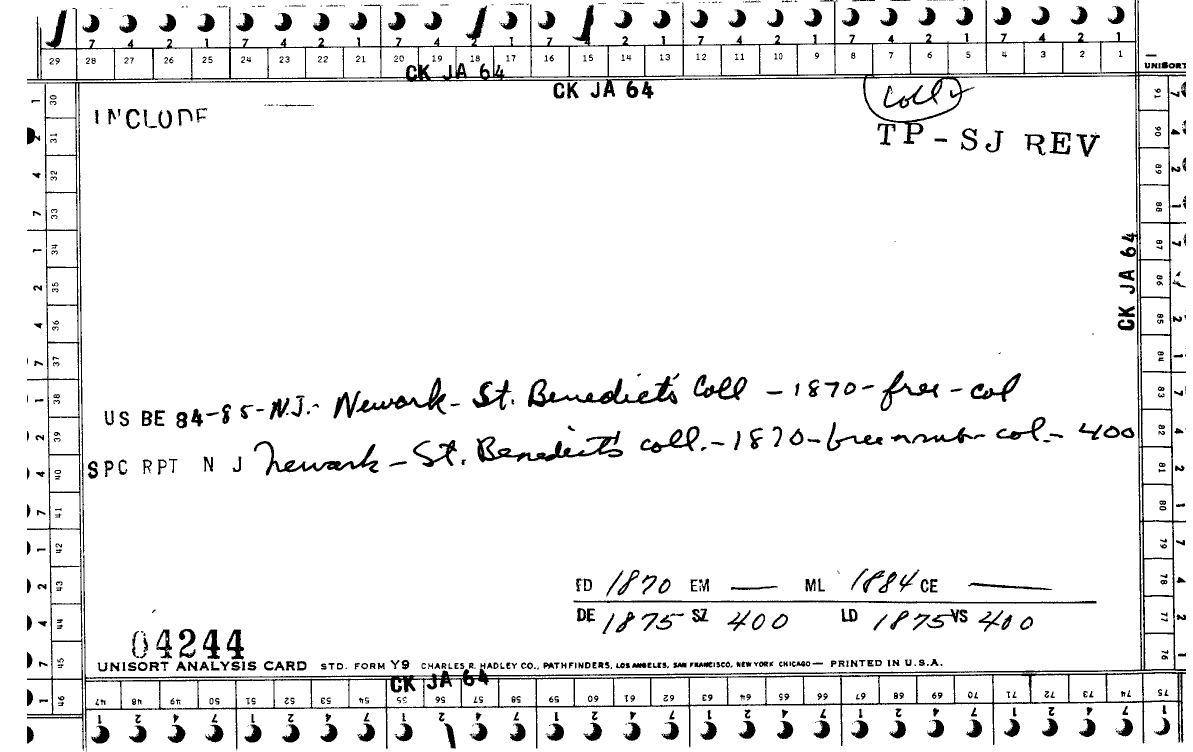 7 4 2 1 7 4 2 1 7 4 2 1 7 4 2 1 7 4 2 1 7 4 2 1
29 28 27 26 25 24 23 22 21 20 19 18 17 16 15 14 13 12 11 10 9 8 7 6 5 4 3 2 1
UNISORT
CK JA 64
CK JA 64
Coll
INCLUDE
TP-SJ REV
CK JA 64
US BE 84-85-N.J.- Newark- St. Benedict's Coll -1870-free-col
SPC RPT N J Newark - St. Benedict's coll.-1870- col.- 400
FD 1870 EM — ML 1884 CE —
DE 1875 SZ 400 LD 1875 VS 400
04244
UNISORT ANALYSIS CARD STD. FORM Y9 CHARLES R. HADLEY CO., PATHFINDERS, LOS ANGELES, SAN FRANCISCO, NEW YORK CHICAGO— PRINTED IN U.S.A.
CK JA 64
30 31 32 33 34 35 36 37 38 39 40 41 42 43 44 45 46
47 48 49 50 51 52 53 54 55 56 57 58 59 60 61 62 63 64 65 66 67 68 69 70 71 72 73 74 75
91 90 89 88 87 86 85 84 83 82 81 80 79 78 77 76